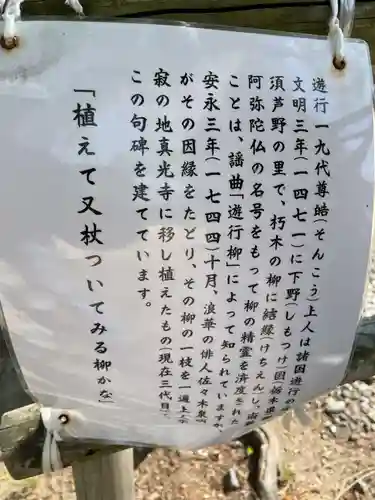 遊行一九代尊皓(そんこう)上人は諸国遊行の
文明三年(一四七一)に下野(しもつけ)国(栃木県
須芦野の里で、朽木の柳に結縁(けちえん)し、南
阿弥陀仏の名号をもって柳の精霊を済度された
ことは、謡曲「遊行柳」によって知られています
安永三年(一七四四)十月、浪華の俳人佐々木泉
がその因縁をたどり、その柳の一枝を一遍上
寂の地真光寺に移し植えたもの(現在三代目
この句碑を建てています。
「植えて又杖ついてみる柳かな」